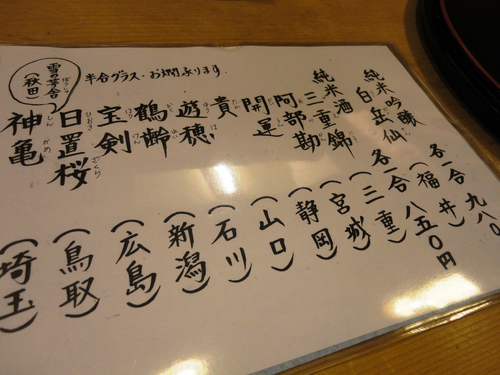 純米吟醸 各一合 九八〇
白岳仙（福井）
純米酒 各一合 八五〇円
三重錦（三重）
阿部勘（宮城）
開運（静岡）
貴（山口）
遊穂（石川）
鶴齢（新潟）
宝剣（広島）
日置桜（鳥取）
神亀（埼玉）
雪の茅舎
（秋田）
半合グラス・お燗あります